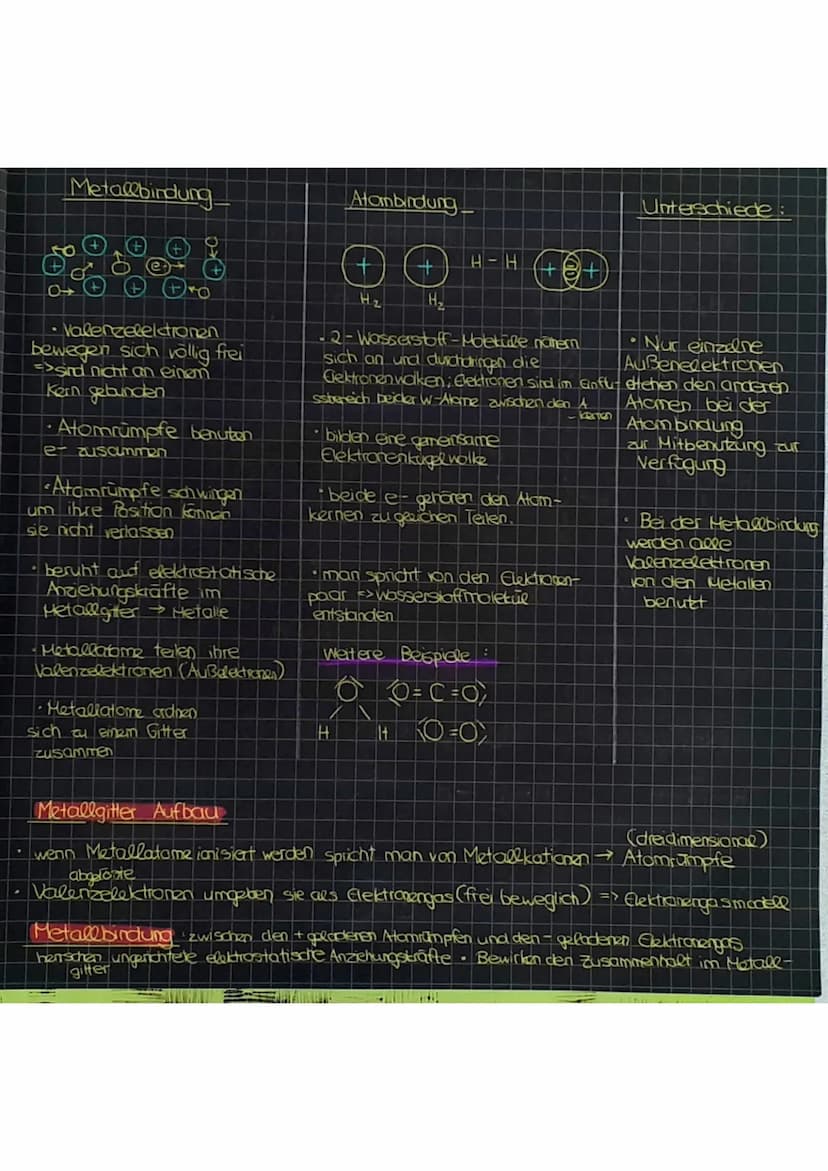 Metallbindung
+ + + + e- + + + +
· Valenzelektronen
bewegen sich völlig frei
=> sind nicht an einem
Kern gebunden
· Atomrümpfe benutzen
e- zusammen
· Atomrümpfe schwingen
um ihre Position können
sie nicht verlassen
· beruht auf elektrostatische
Anziehungskräfte im
Metallgitter → Metalle
· Metallatome teilen ihre
Valenzelektronen (Außelektronen)
· Metallatome ordnen
sich zu einem Gitter
zusammen
Atombindung
+ + H - H + +
H2 H2
· 2 - Wasserstoff-Moleküle nähern
sich an und durchdringen die
Elektronenwolken; Elektronen sind im Einflu-
ssbereich beider W-Atome zwischen den A
- kernen
· bilden eine gemeinsame
Elektronenkugelwolke
· beide e- gehören den Atom-
kernen zu gleichen Teilen.
· man spricht von den Elektronen-
paar => Wasserstoffmolekül
entstanden
Weitere Beispiele :
O O = C = O
H H O = O
Unterschiede :
· Nur einzelne
Außenelektronen
stehen den anderen
Atomen bei der
Atombindung
zur Mitbenutzung zur
Verfügung
· Bei der Metallbindung
werden alle
Valenzelektronen
von den Metallen
benutzt
Metallgitter Aufbau
(dreidimensional)
· wenn Metallatome ionisiert werden spricht man von Metallkationen → Atomrümpfe
abgelöste
· Valenzelektronen umgeben sie als Elektronengas (frei beweglich) => Elektronengasmodell
Metallbindung zwischen den + geladenen Atomrümpfen und den - geladenen Elektronengas
herrschen ungerichtete elektrostatische Anziehungskräfte · Bewirken den Zusammenhalt im Metall-
gitter